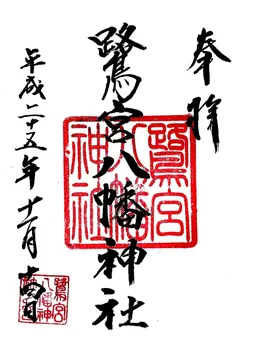 奉拝
鷺宮八幡神社
平成二十五年十一月吉日
鷺宮
八幡
神社
鷺宮
八幡神